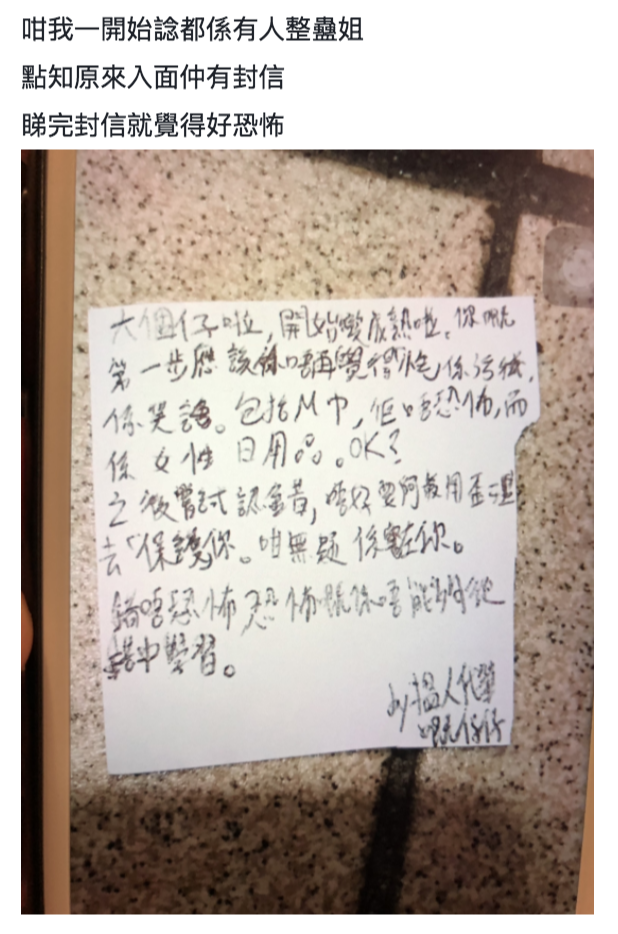 咁我一開始諗都係有人整蠱姐
點知原來入面仲有封信
睇完封信就覺得好恐怖
大個仔啦,開始變成熟啦。你嘅
第一步應該係唔再覺得 係污穢,
係笑話。包括M巾,佢唔恐怖,而
係女性日用品。OK?
之後嘗試認錯,唔好要阿 用歪
去「保護你。咁無疑係 你。
錯唔恐怖恐怖嘅係唔能夠從
錯中學習。
by搵人代筆
嘅仔仔